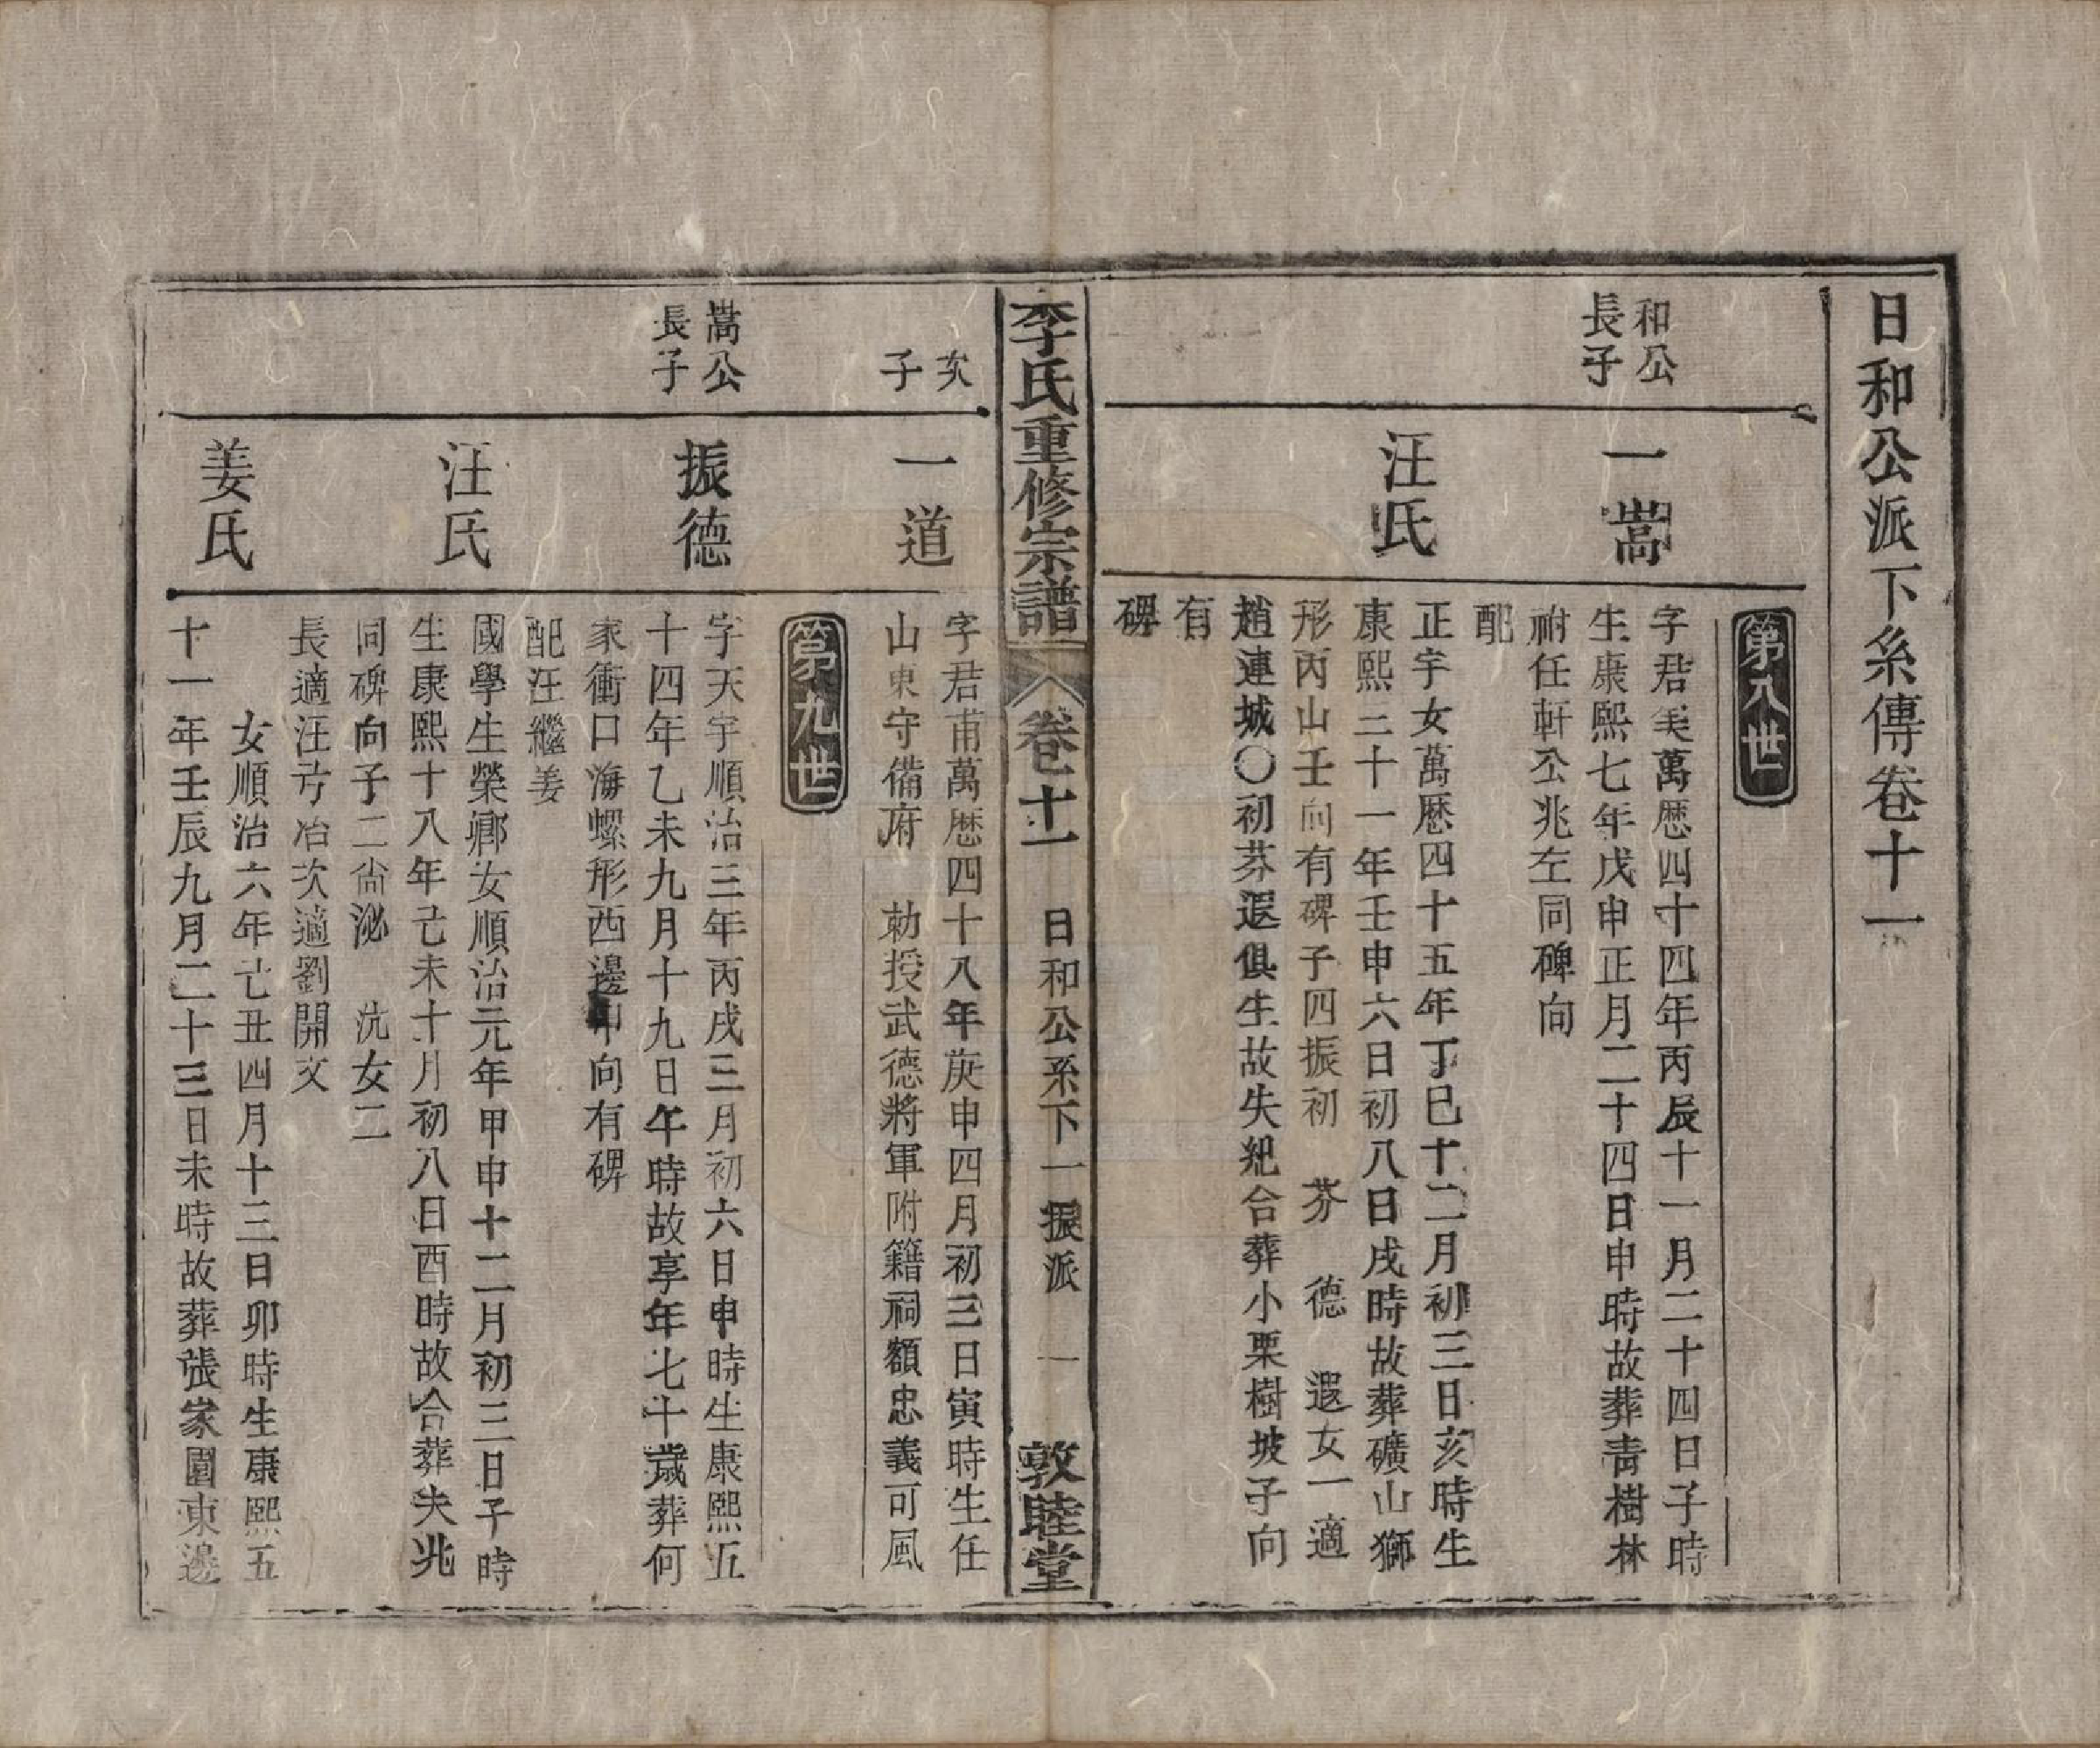 日和公派下糸傳卷十一
第八世
和公長子
一嵩
字君美萬厯四十四年丙辰十一月二十四日子時
生康熙七年戊申正月二十四日申時故葬靑樹林
祔任軒公兆左同碑向
配
汪氏
正宇女萬厯四十五年丁巳十二月初三日亥時生
康熙三十一年壬申六日初八日戌時故葬礦山獅
形丙山壬向有碑子四振初 芬 德 遐女一適
趙連城〇初芬遐俱生故失紀合葬小栗樹坡子向
有
碑
李氏重修宗譜 卷十一 日和公系下一振派 一 敦睦堂
次子
一道
字君甫萬厯四十八年庚申四月初三日寅時生任
山東守備府 勅授武德將軍附籍祠額忠義可風
第九世
嵩公長子
振德
字天宇順治三年丙戌三月初六日申時生康熙五
十四年乙未九月十九日午時故享年七十歲葬何
家衝口海螺形西邊 向有碑
配汪繼姜
汪氏
國學生榮鄉女順治元年甲申十二月初三日子時
生康熙十八年己未十月初八日酉時故合葬失兆
同碑向子二尙泌 沆女二
長適汪 冶次適劉開文
姜氏
女順治六年己丑四月十三日卯時生康熙五
十一年壬辰九月二十三日未時故葬張家園東邊